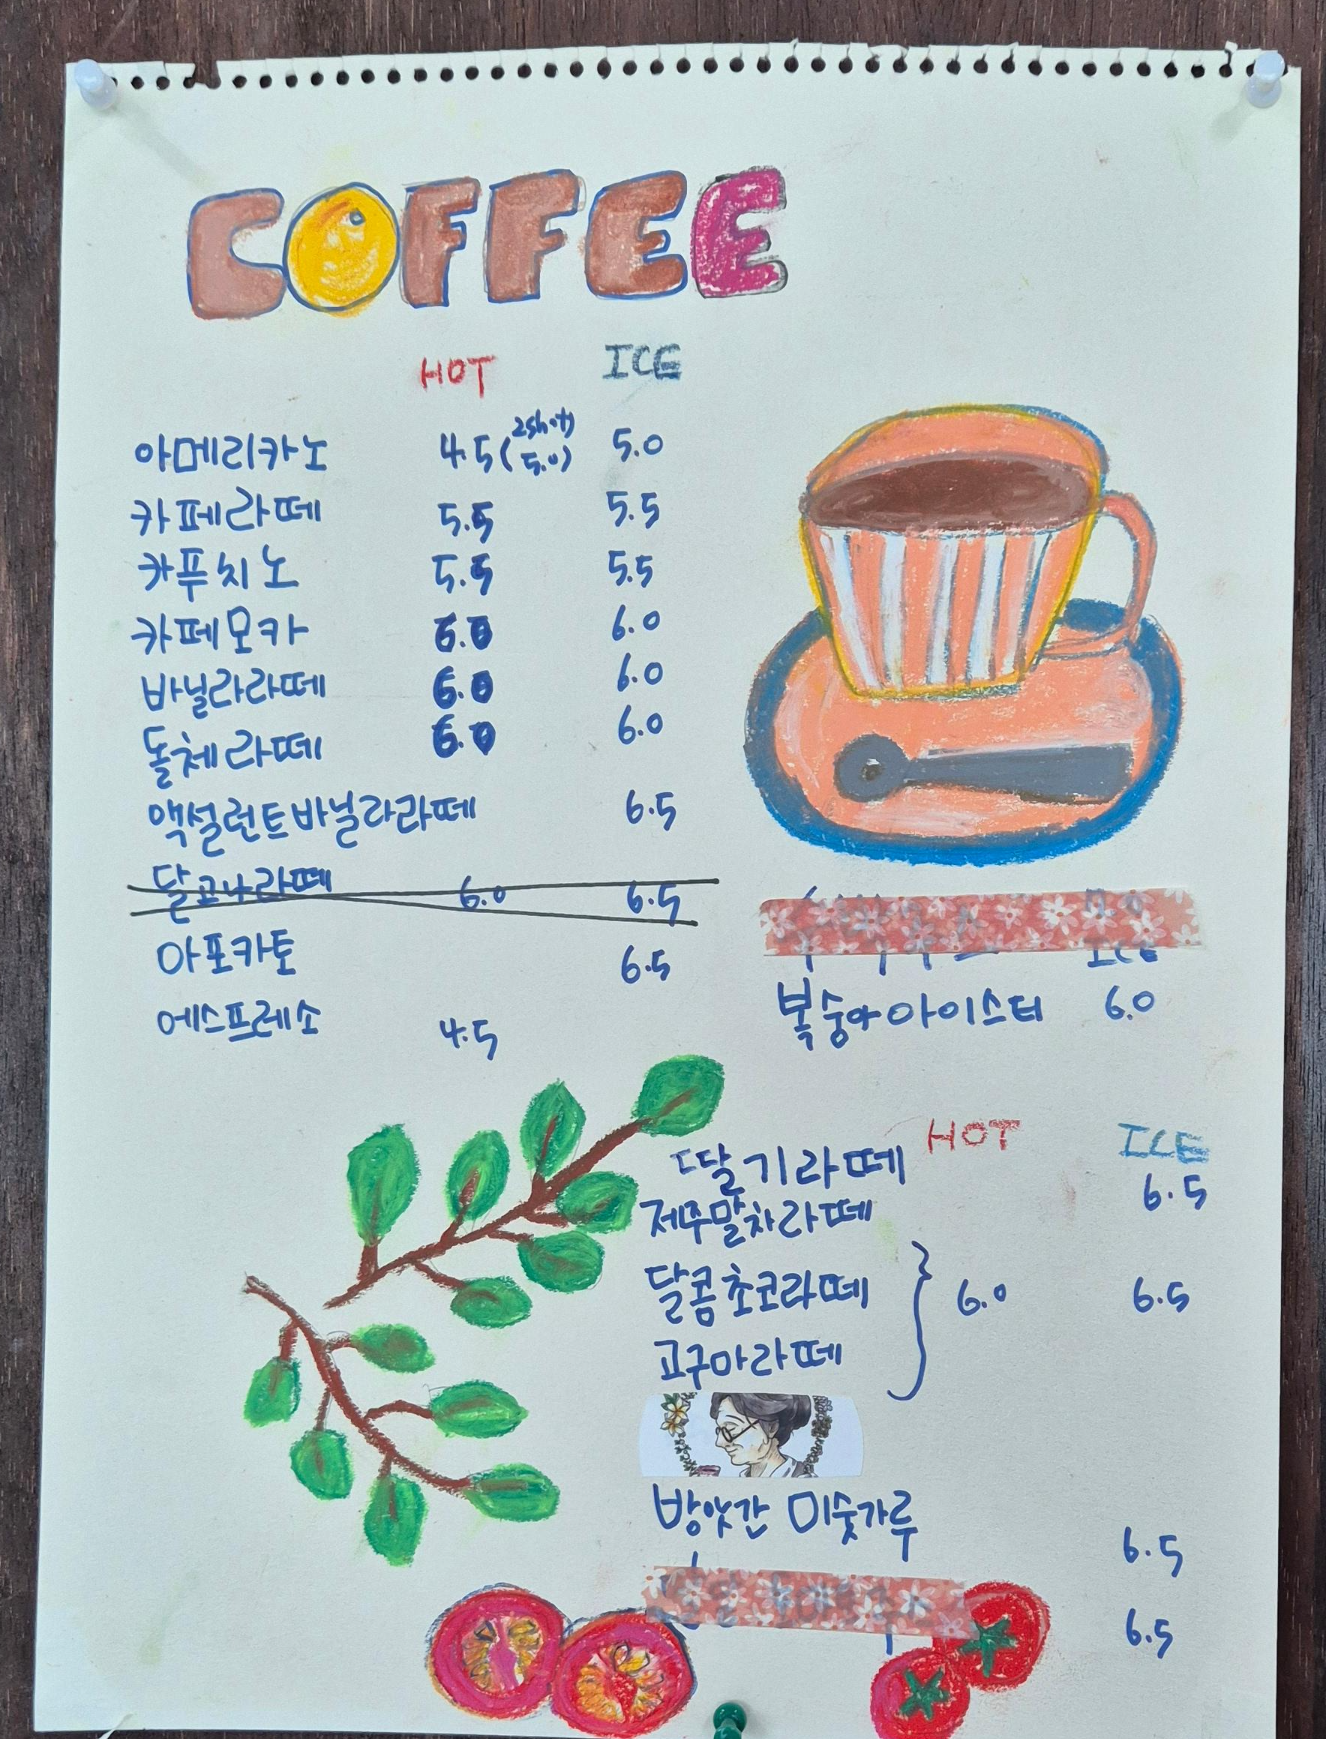 COFFEE
HOT ICE
아메리카노 4.5 (2shot 5.0) 5.0
카페라떼 5.5 5.5
카푸치노 5.5 5.5
카페모카 6.0 6.0
바닐라라떼 6.0 6.0
돌체라떼 6.0 6.0
액설런트바닐라라떼 6.5
달고나라떼 6.0 6.5
아포카토 6.5
에스프레소 4.5
ICE
복숭아아이스티 6.0
HOT ICE
딸기라떼 6.5
제주말차라떼
달콤초코라떼 6.0 6.5
고구마라떼
방앗간 미숫가루 6.5
6.5